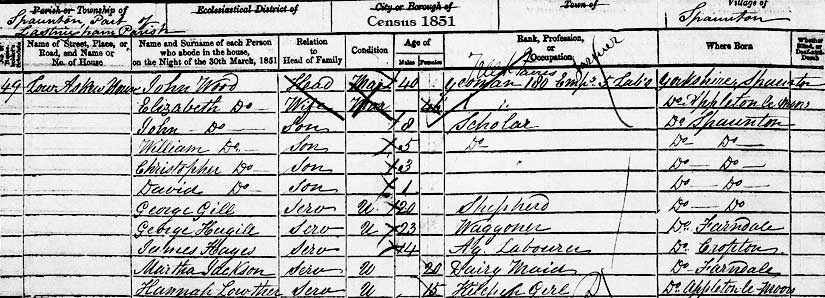 Parish or Township of Ecclesiastical District of City or Borough of Town of Village of
Spaunton, Part of Spaunton
Lastingham Parish Census 1851
Name of Street, Place, or Road, and Name or No. of House Name and Surname of each Person who abode in the house, on the Night of the 30th March, 1851 Relation to Head of Family Condition Age of Males Females Rank, Profession, or Occupation Where Born Whether Blind, or Deaf-and-Dumb
49 Low Askew House John Wood Head Mar 40 Yeoman 180 Acres Emp. 5 Lab. Farmer Yorkshire, Spaunton
Elizabeth Do Wife Mar " Do Appleton le Moors
John Do Son 8 Scholar Do Spaunton
William Do Son 5 Do Do Do
Christopher Do Son 3 Do Do
David Do Son 1 Do Do
George Gill Serv U 20 Shepherd
George Hugill Serv U 23 Waggoner Do Farndale
James Hayes Serv 14 Ag. Labourer Do Cropton
Martha Jackson Serv U 20 Dairy Maid Do Farndale
Hannah Lowther Serv U 15 Kitchen Girl Do Appleton le Moors